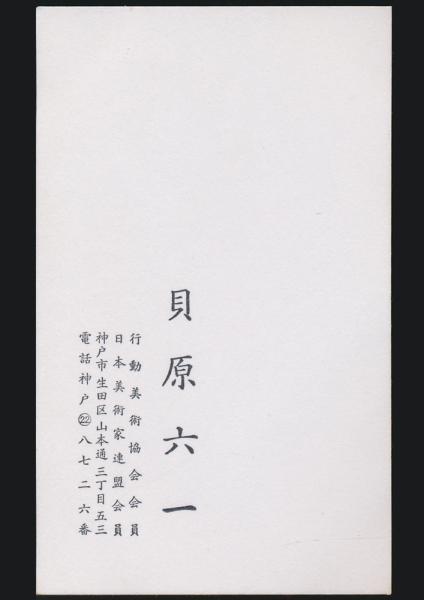 貝原六一
行動美術協会会員
日本美術家連盟会員
神戸市生田区山本通三丁目五三
電話神戸㉒八七二六番